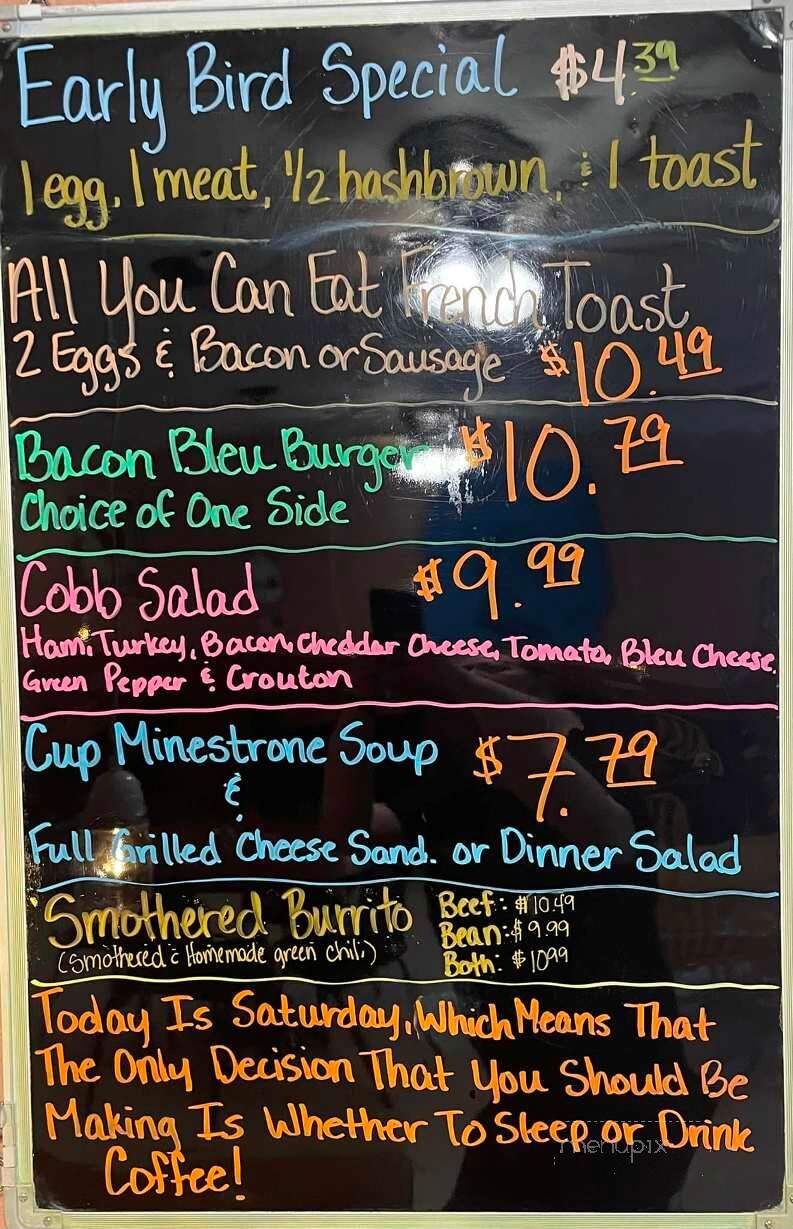 Early Bird Special $4.39
1 egg, 1 meat, 1/2 hashbrown, & 1 toast
All You Can Eat French Toast
2 Eggs & Bacon or Sausage $10.49
Bacon Bleu Burger $10.79
Choice of One Side
Cobb Salad $9.99
Ham, Turkey, Bacon, Cheddar Cheese, Tomato, Bleu Cheese,
Green Pepper & Crouton
Cup Minestrone Soup $7.79
&
Full Grilled Cheese Sand. or Dinner Salad
Smothered Burrito Beef: $10.49
Bean: $9.99
(Smothered c Homemade green chili) Both: $10.99
Today Is Saturday, Which Means That
The Only Decision That You Should Be
Making Is Whether To Sleep or Drink
Coffee!
menupix